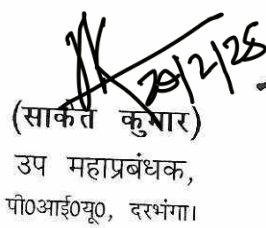 20/2/25
(साकेत कुमार)
उप महाप्रबंधक,
पी0आई0यू0, दरभंगा।